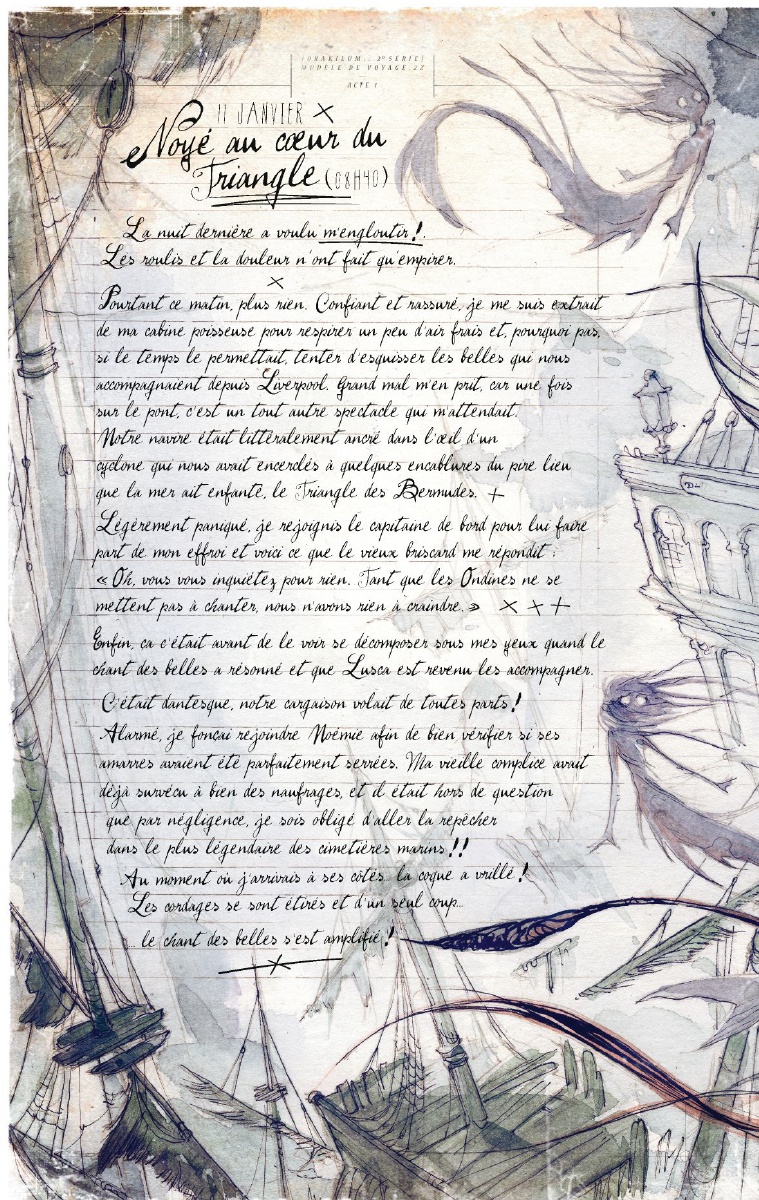 MODÈLE DE VOYAGE.22
ACTE 1
11 JANVIER ×
Noyé au cœur du
Triangle (08H40)
La nuit dernière a voulu m'engloutir !.
Les roulis et la douleur n'ont fait qu'empirer.
×
Pourtant ce matin, plus rien. Confiant et rassuré, je me suis extrait
de ma cabine poisseuse pour respirer un peu d'air frais et, pourquoi pas,
si le temps le permettait, tenter d'esquisser les belles qui nous
accompagnaient depuis Liverpool. Grand mal m'en prit, car une fois
sur le pont, c'est un tout autre spectacle qui m'attendait.
Notre navire était littéralement ancré dans l'œil d'un
cyclone qui nous avait encerclés à quelques encablures du pire lieu
que la mer ait enfanté, le Triangle des Bermudes. +
Légèrement paniqué, je rejoignis le capitaine de bord pour lui faire
part de mon effroi et voici ce que le vieux briscard me répondit :
« Oh, vous vous inquiétez pour rien. Tant que les Ondines ne se
mettent pas à chanter, nous n'avons rien à craindre. » × × +
Enfin, ca c'était avant de le voir se décomposer sous mes yeux quand le
chant des belles a résonné et que Lusca est revenu les accompagner.
C'était dantesque, notre cargaison volait de toutes parts !
Alarmé, je fonçai rejoindre Noémie afin de bien vérifier si ses
amarres avaient été parfaitement serrées. Ma vieille complice avait
déjà survécu à bien des naufrages, et il était hors de question
que par négligence, je sois obligé d'aller la repêcher
dans le plus légendaire des cimetières marins !!
Au moment où j'arrivais à ses côtés la coque a vrillé !
Les cordages se sont étirés et d'un seul coup...
le chant des belles s'est amplifié !